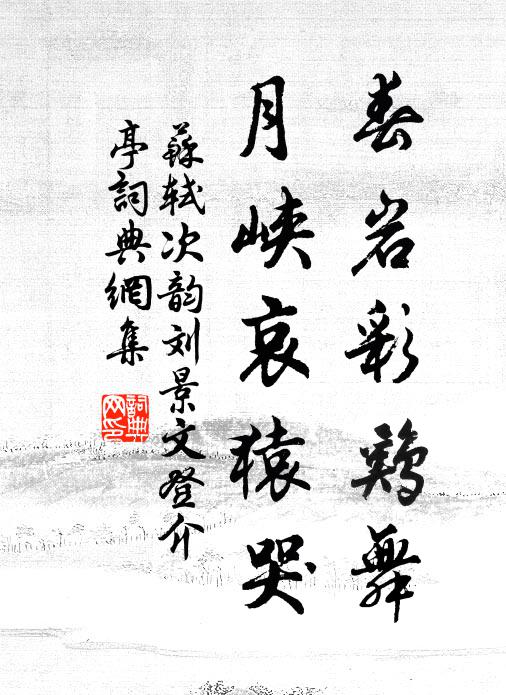 春岩彩鸡舞
月峡哀猿哭
蘇轼次韵刘景文登介
亭詞典網集
詞典
网印